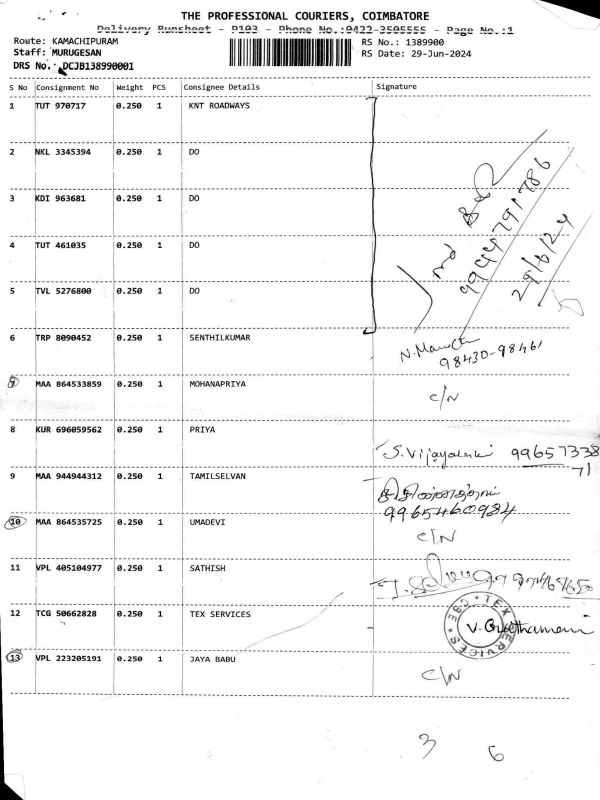 THE PROFESSIONAL COURIERS, COIMBATORE
Delivery Runsheet - P103 - Phone No.:0422-3505555 - Page No.:1
Route: KAMACHIPURAM RS No.: 1389900
Staff: MURUGESAN RS Date: 29-Jun-2024
DRS No.: DCJB138990001
S No Consignment No Weight PCS Consignee Details Signature
1 TUT 970717 0.250 1 KNT ROADWAYS
2 NKL 3345394 0.250 1 DO
3 KDI 963681 0.250 1 DO
9944791786
29/6/24
4 TUT 461035 0.250 1 DO
5 TVL 5276800 0.250 1 DO
6 TRP 8090452 0.250 1 SENTHILKUMAR
98430-98461
7 MAA 864533859 0.250 1 MOHANAPRIYA C/N
8 KUR 696059562 0.250 1 PRIYA
S. Vijayalakshmi 99657 33871
9 MAA 944944312 0.250 1 TAMILSELVAN
9965460984
10 MAA 864535725 0.250 1 UMADEVI C/N
11 VPL 405104977 0.250 1 SATHISH
12 TCG 50662828 0.250 1 TEX SERVICES
TEX SERVICES * CBE *
13 VPL 223205191 0.250 1 JAYA BABU C/N
3 6